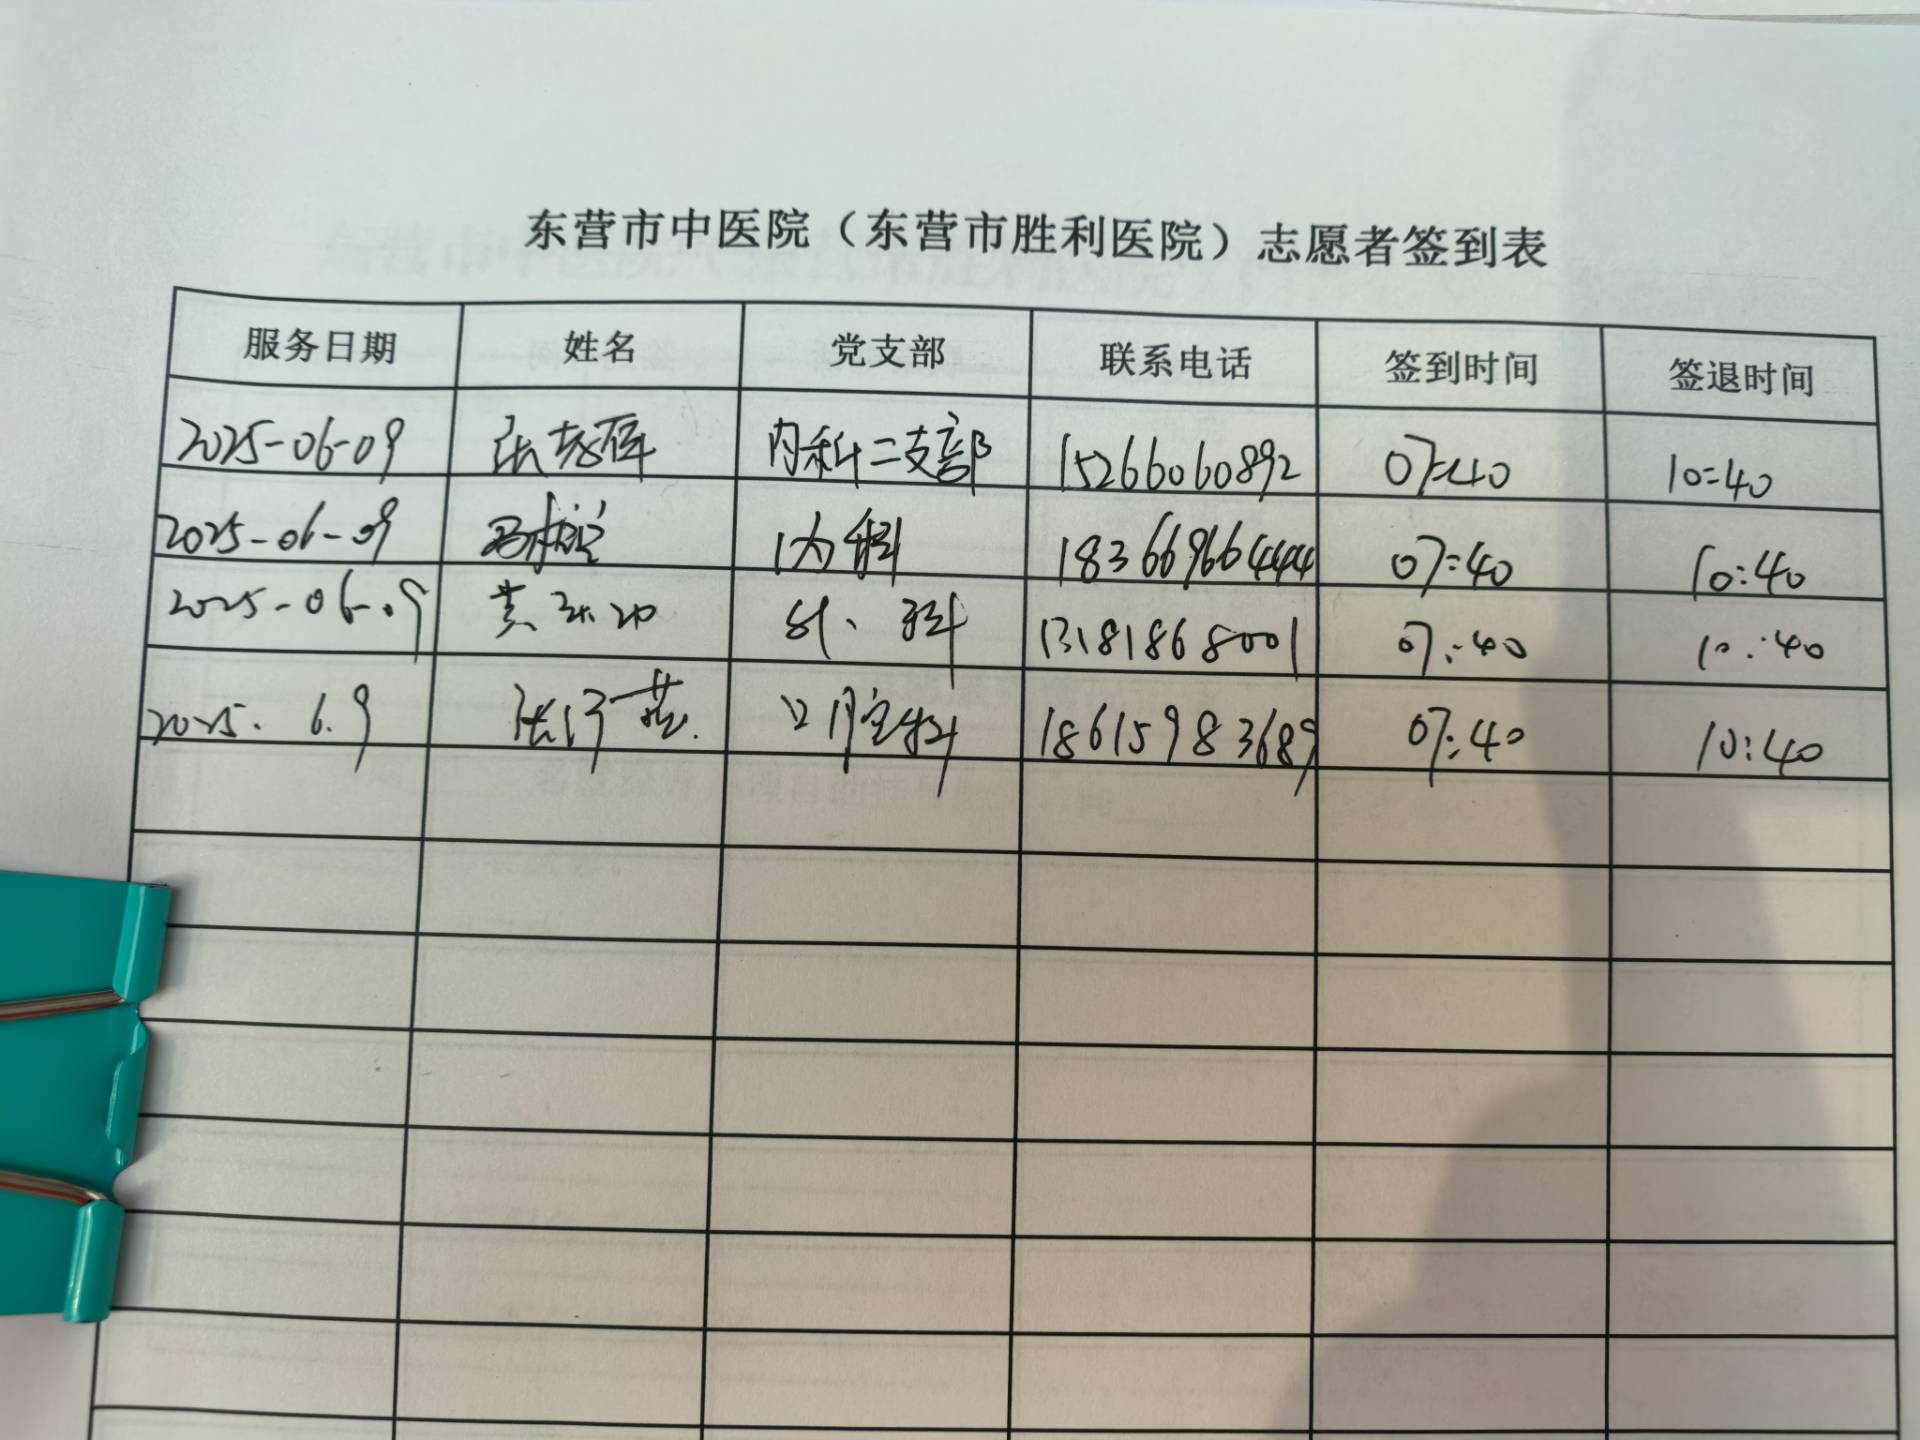 东营市中医院（东营市胜利医院）志愿者签到表
服务日期 姓名 党支部 联系电话 签到时间 签退时间
2025-06-09 张 内科二支部 15266060892 07:40 10:40
2025-06-09 内科 18366966444 07:40 10:40
2025-06-09 黄 外科 13181868001 07:40 10:40
2025.6.9 张 口腔科 18615983689 07:40 10:40